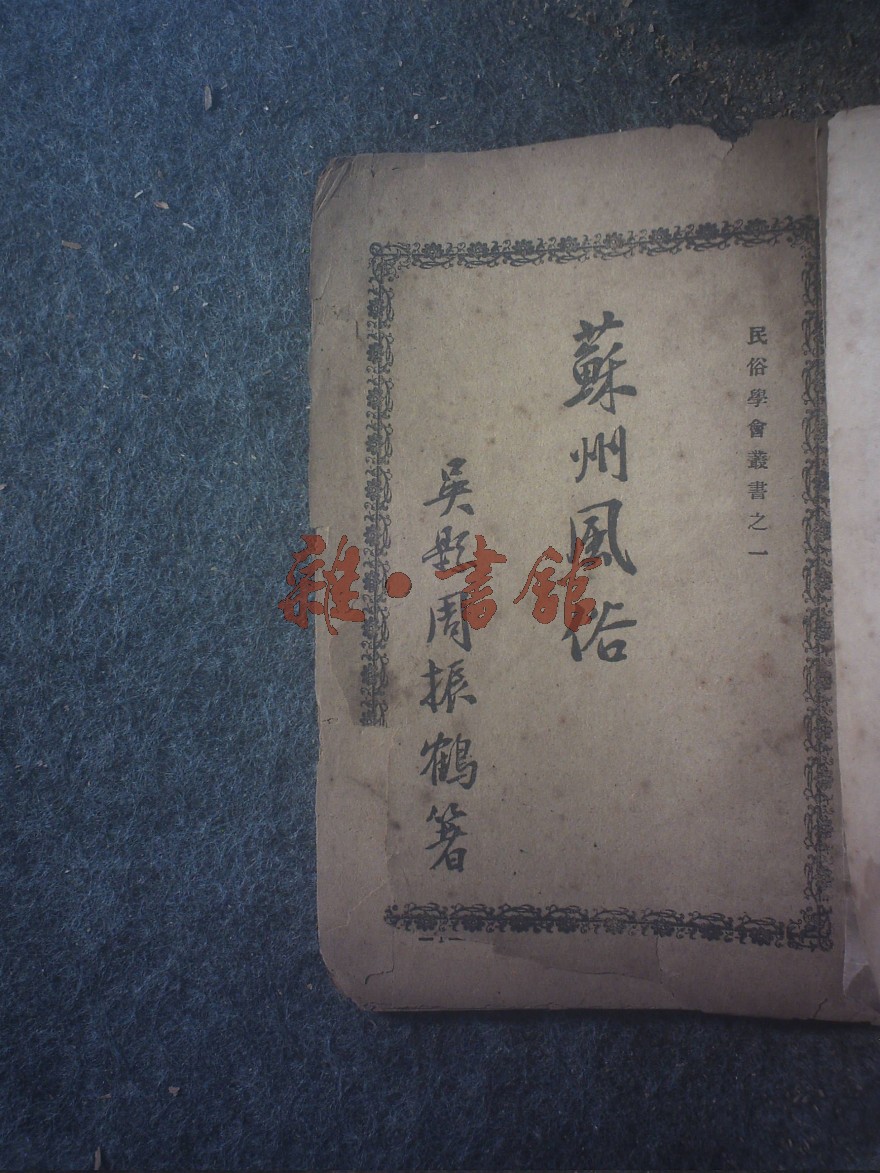 民俗學會叢書之一
蘇州風俗
吳縣周振鶴箸
雜·書館